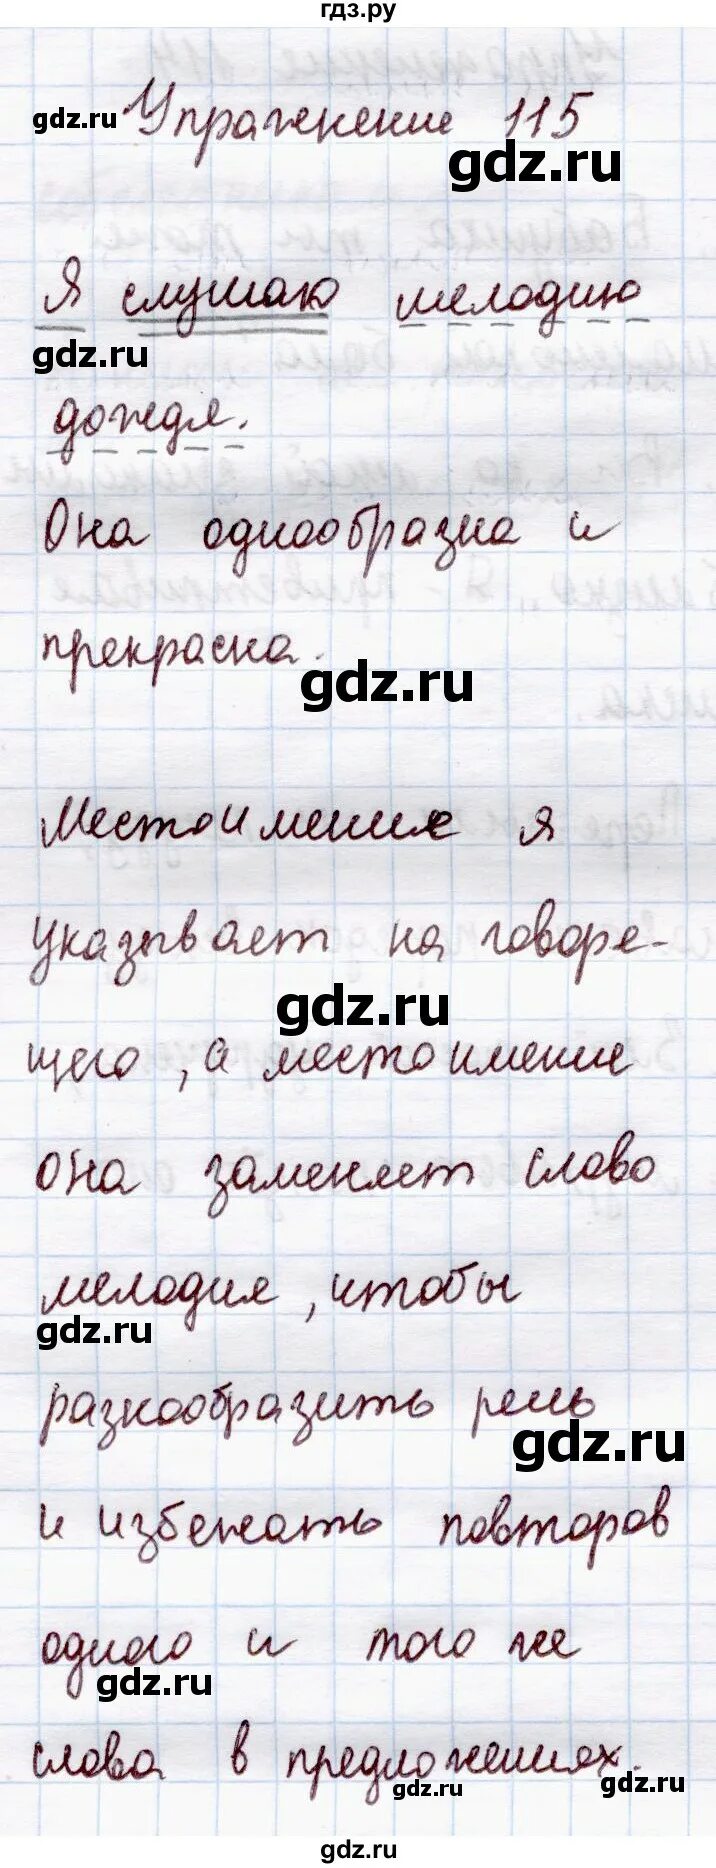 гдз.ру
Упражнение 115
gdz.ru
gdz.ru
Я слушаю мелодию
gdz.ru
дождя.
Она однообразна и
прекрасна.
gdz.ru
Местоимение я
указывает на говоре-
gdz.ru
щего, а местоимение
она заменяет слово
мелодия, чтобы
gdz.ru
разнообразить речь
gdz.ru
и избежать повторов
одного и того же
gdz.ru
слова в предложениях.
gdz.ru
gdz.ru
gdz.ru